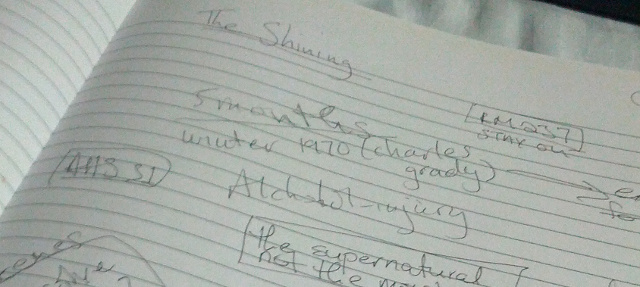 The Shining
5 months
RM 237
Stay out
winter 1970 (charles
grady)
AHS S1
Alchohol-injury
eyes
the supernatural
not the